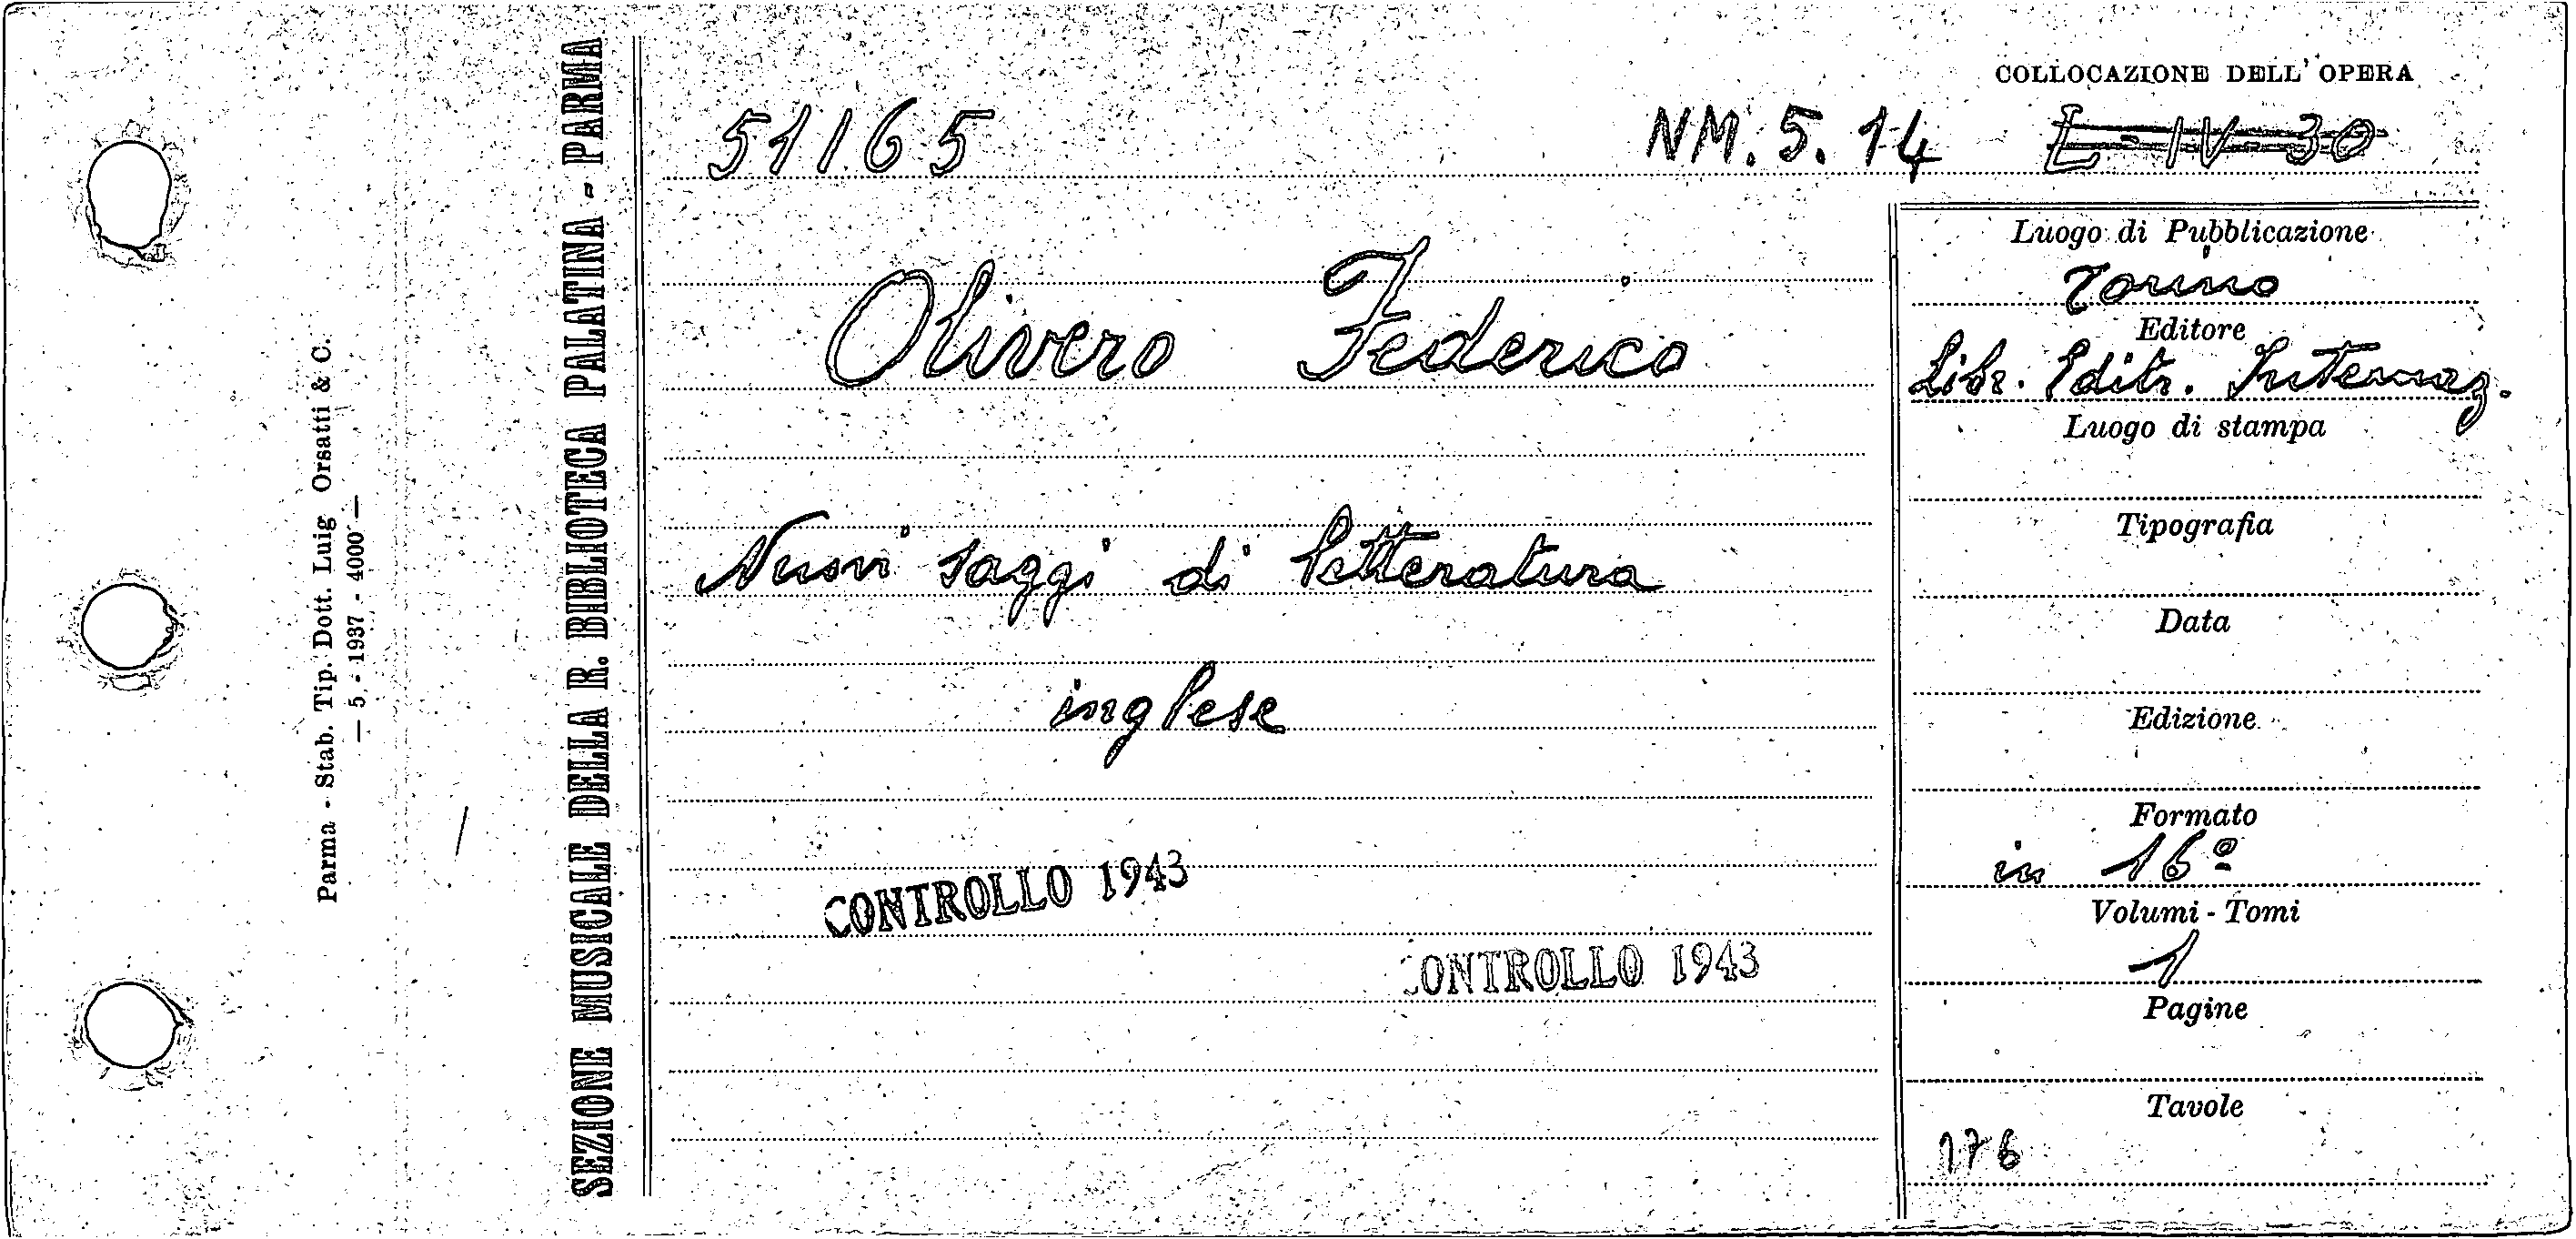 Parma - Stab. Tip. Dott. Luig Orsatti & C.
— 5 - 1937 - 4000 —
SEZIONE MUSICALE DELLA R. BIBLIOTECA PALATINA - PARMA
COLLOCAZIONE DELL'OPERA
51165 NM. 5. 14 L - IV - 30
Olivero Federico
Nuovi saggi di letteratura
inglese
CONTROLLO 1943
CONTROLLO 1943
Luogo di Pubblicazione
Torino
Editore
Libr. Editr. Internaz.
Luogo di stampa
Tipografia
Data
Edizione
Formato
in 16º
Volumi - Tomi
1
Pagine
Tavole
176